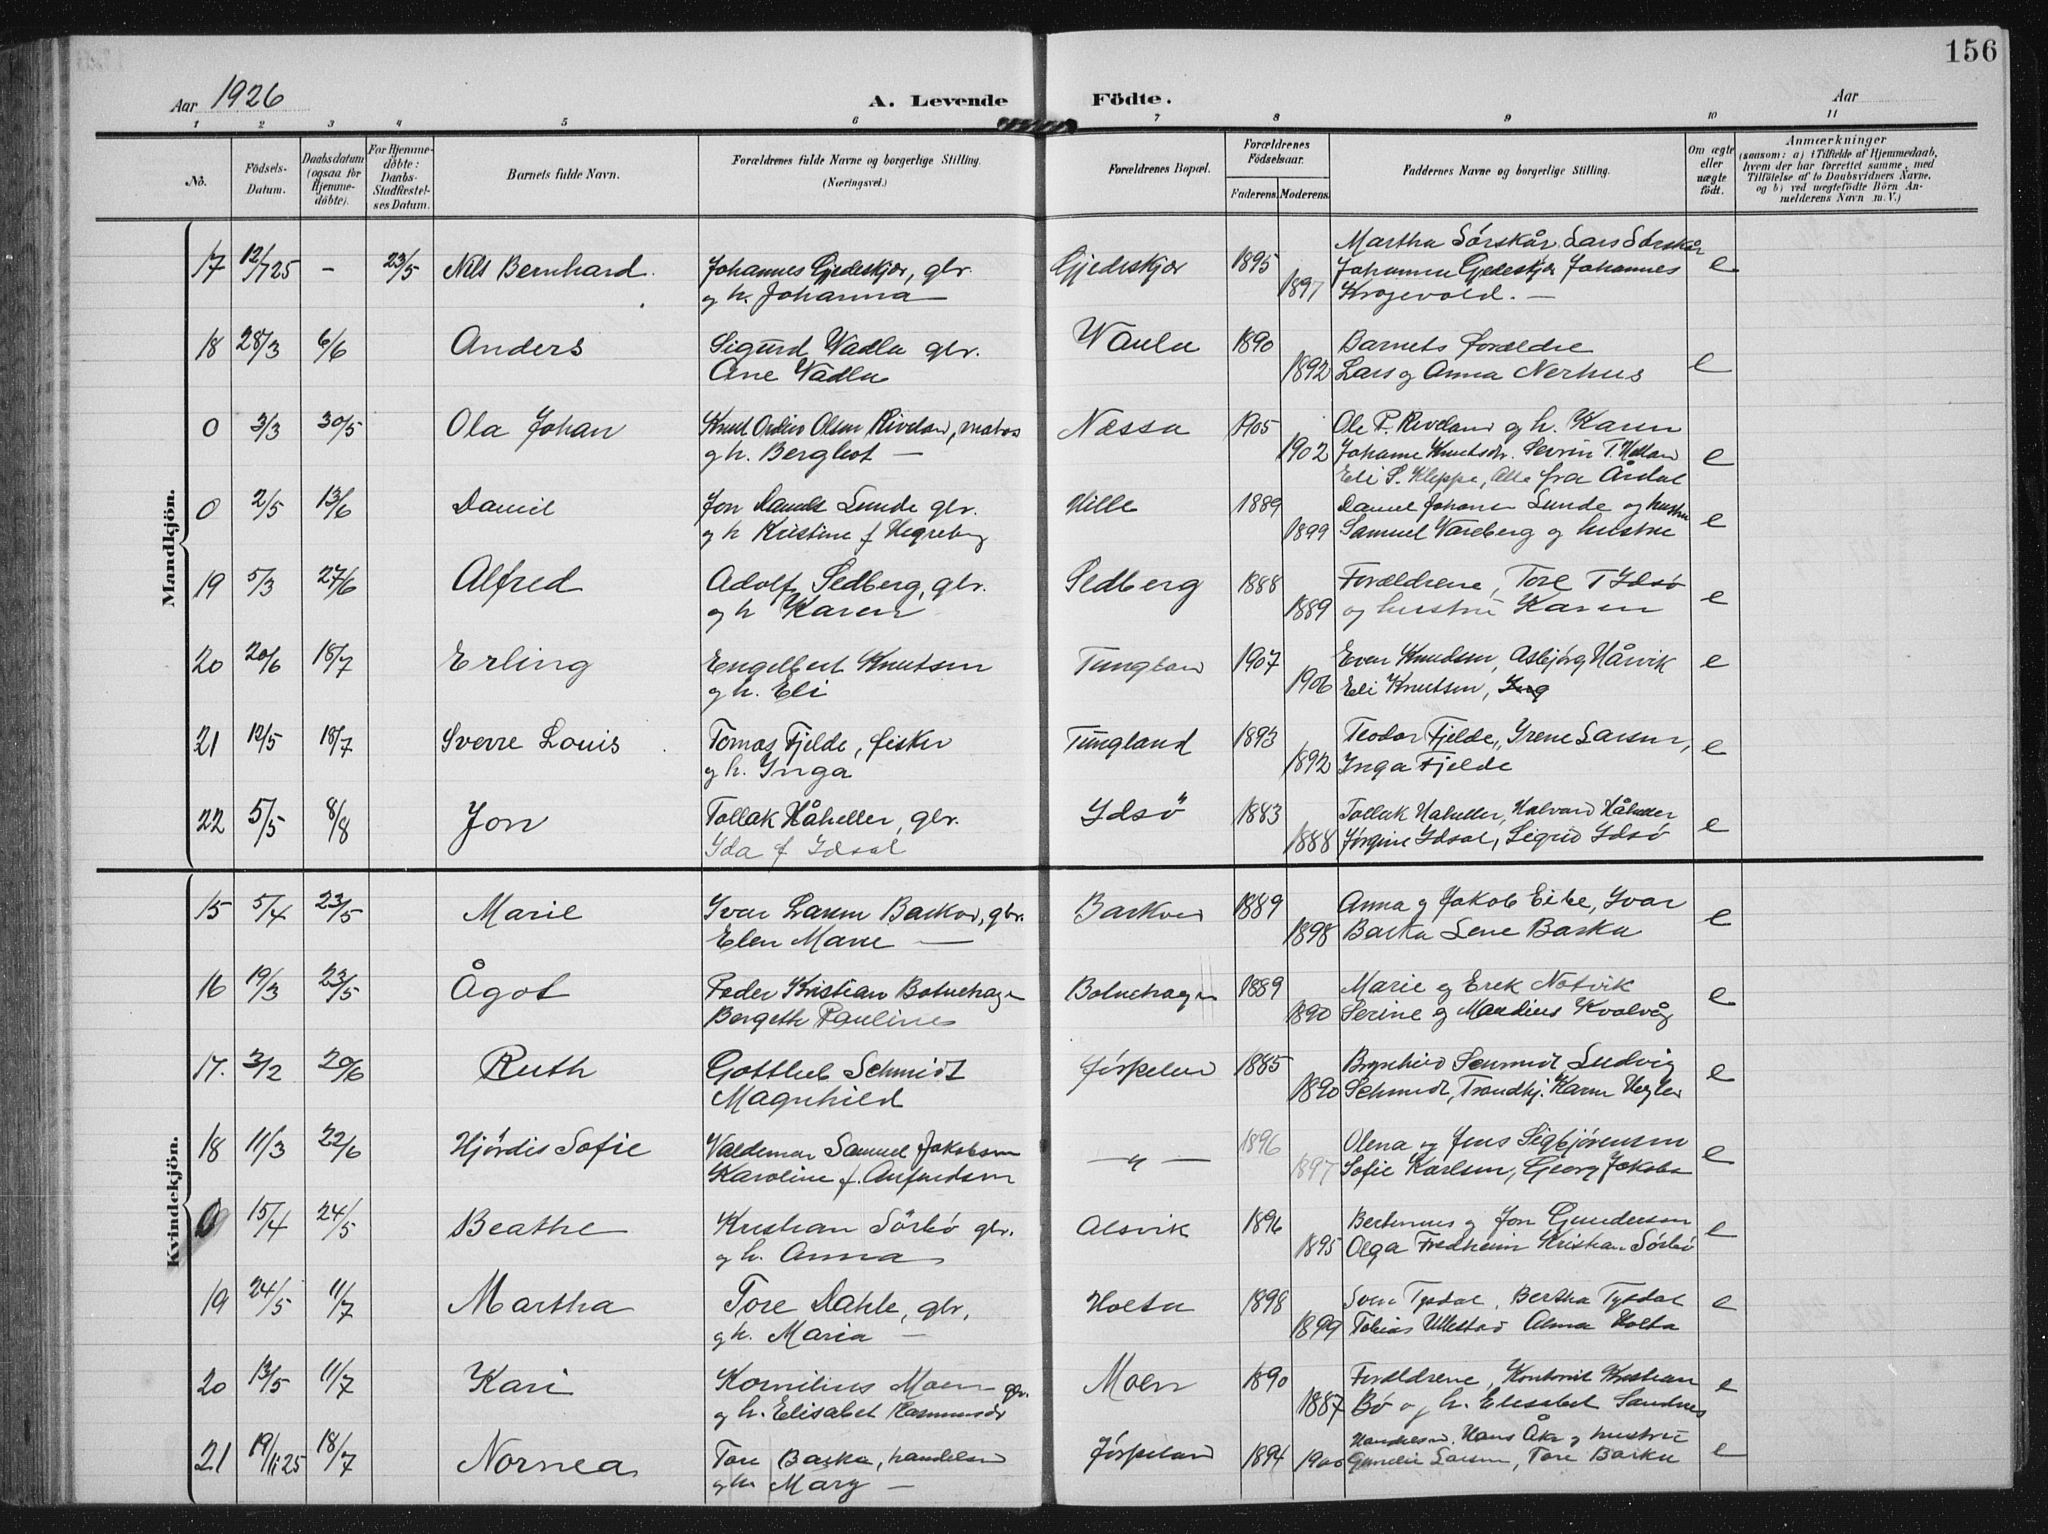 156
Aar 1926
A. Levende Födte.
Aar
1 2 3 4 5 6 7 8 9 10 11
No.
Födsels-Datum.
Daabsdatum (ogsaa for Hjemmedöbte).
For Hjemmedöbte: Daabs-Stadfæstelses Datum.
Barnets fulde Navn.
Forældrenes fulde Navne og borgerlige Stilling.
(Næringsvei.)
Forældrenes Bopæl.
Forældrenes Födselsaar.
Faderens. Moderens.
Faddernes Navne og borgerlige Stilling.
Om ægte eller uægte födt.
Anmærkninger
(saasom: a) i Tilfælde af Hjemmedaab, hvem der har forrettet samme, med Tilföielse af to Daabsvidners Navne, og b) ved uægtefödte Börn Anmelderens Navn m. V.)
Mandkjön.
17 12/7 25 – 23/5 Nils Bernhard. Johannes Gjedeskjær, gbr. Gjedeskjær 1895 Martha Sörskår, Lars Sörskår e
og h. Johanna — 1897 Johanna Gjedeskjær Johannes
Krogevold. —
18 28/3 6/6 Anders Sigurd Vadla gbr. Vaula 1890 Barnets forældre e
Ane Vadla 1892 Lars og Anna Nerhus
0 3/3 30/5 Ola Johan Knut Olsen Riveland, matros Næssa 1905 Ole P. Riveland og h. Karen e
og h. Bergliot — 1902 Johanne Knutsdr. Sevrin T. Helland
Eli S. Kleppe, alle fra Årdal
0 2/5 13/6 Daniel Jon Daniels Lunde gbr. Hille 1889 Daniel Johanes Lunde og hustru e
og h Kristine f Hegreberg 1899 Samuel Vareberg og hustru
19 5/3 27/6 Alfred Adolf Sedberg, gbr. Sedberg 1888 Forældrene, Tore T Idsö e
og h Karen 1889 og hustru Karen
20 20/6 18/7 Erling Engelbert Knutsen Tungland 1907 Even Knudsen, Asbjörg Hårvik e
og h. Eli 1906 Eli Knutsen,
21 12/5 18/7 Sverre Louis Tomas Fjelde, fisker Tungland 1893 Teodor Fjelde, Irene Larsen, e
og h. Inga 1892 Inga Fjelde
22 5/5 8/8 Jon Tollak Håheller, gbr. Idsö 1883 Tollak Håheller, Halvard Håheller e
Ida f Idsal 1888 Jørgine Idsal, Sigrid Idsö
Kvindekjön.
15 5/4 23/5 Marie Ivar Larsen Barkved, gbr. Barkved 1889 Anna og Jakob Eike, Ivar e
Elen Marie — 1898 Barka Lene Barka
16 19/3 23/5 Ågot Peder Kristian Botnehagen Botnehagen 1889 Marie og Erek Notvik e
Bergeth Pauline 1890 Serine og Mandius Kvalvåg
17. 3/2 20/6 Ruth Gottlieb Schmidt Jörpeland 1885 Brynhild Schmidt Ludvig e
Magnhild 1890 Schmidt, Trondhj. Karen Vegler
18 11/3 22/6 Hjördis Sofie Valdemar Samuel Jakobsen — " — 1896 Olena og Jens Sigbjörnsen e
Karoline f. Anfindsen 1897 Sofie Karlsen, Georg Jakobs
0 15/4 24/5 Beathe Kristian Sörbö gbr. Alsvik 1896 og Jon Gundersen e
og h. Anna 1895 Olga Fredheim Kristian Sörbö
19 24/5 11/7 Martha Tore Dahle, gbr. Holta 1898 Sven Tysdal, Bertha Tysdal e
og h. Maria — 1899 Tobias Ullestad Alma Holta
20 13/5 11/7 Kari Kornilius Moen gbr. Moen 1890 Foreldrene, Kristian e
og h. Elisabet Rasmusdr 1887 Bö og h. Elisabet Sandnes
21 19/11 25 18/7 Nornea Tore Barka, handelsm Jörpeland 1894 Handelsm. Hans Åke og hustru e
og h. Mary — 1900 Larsen, Tore Barka